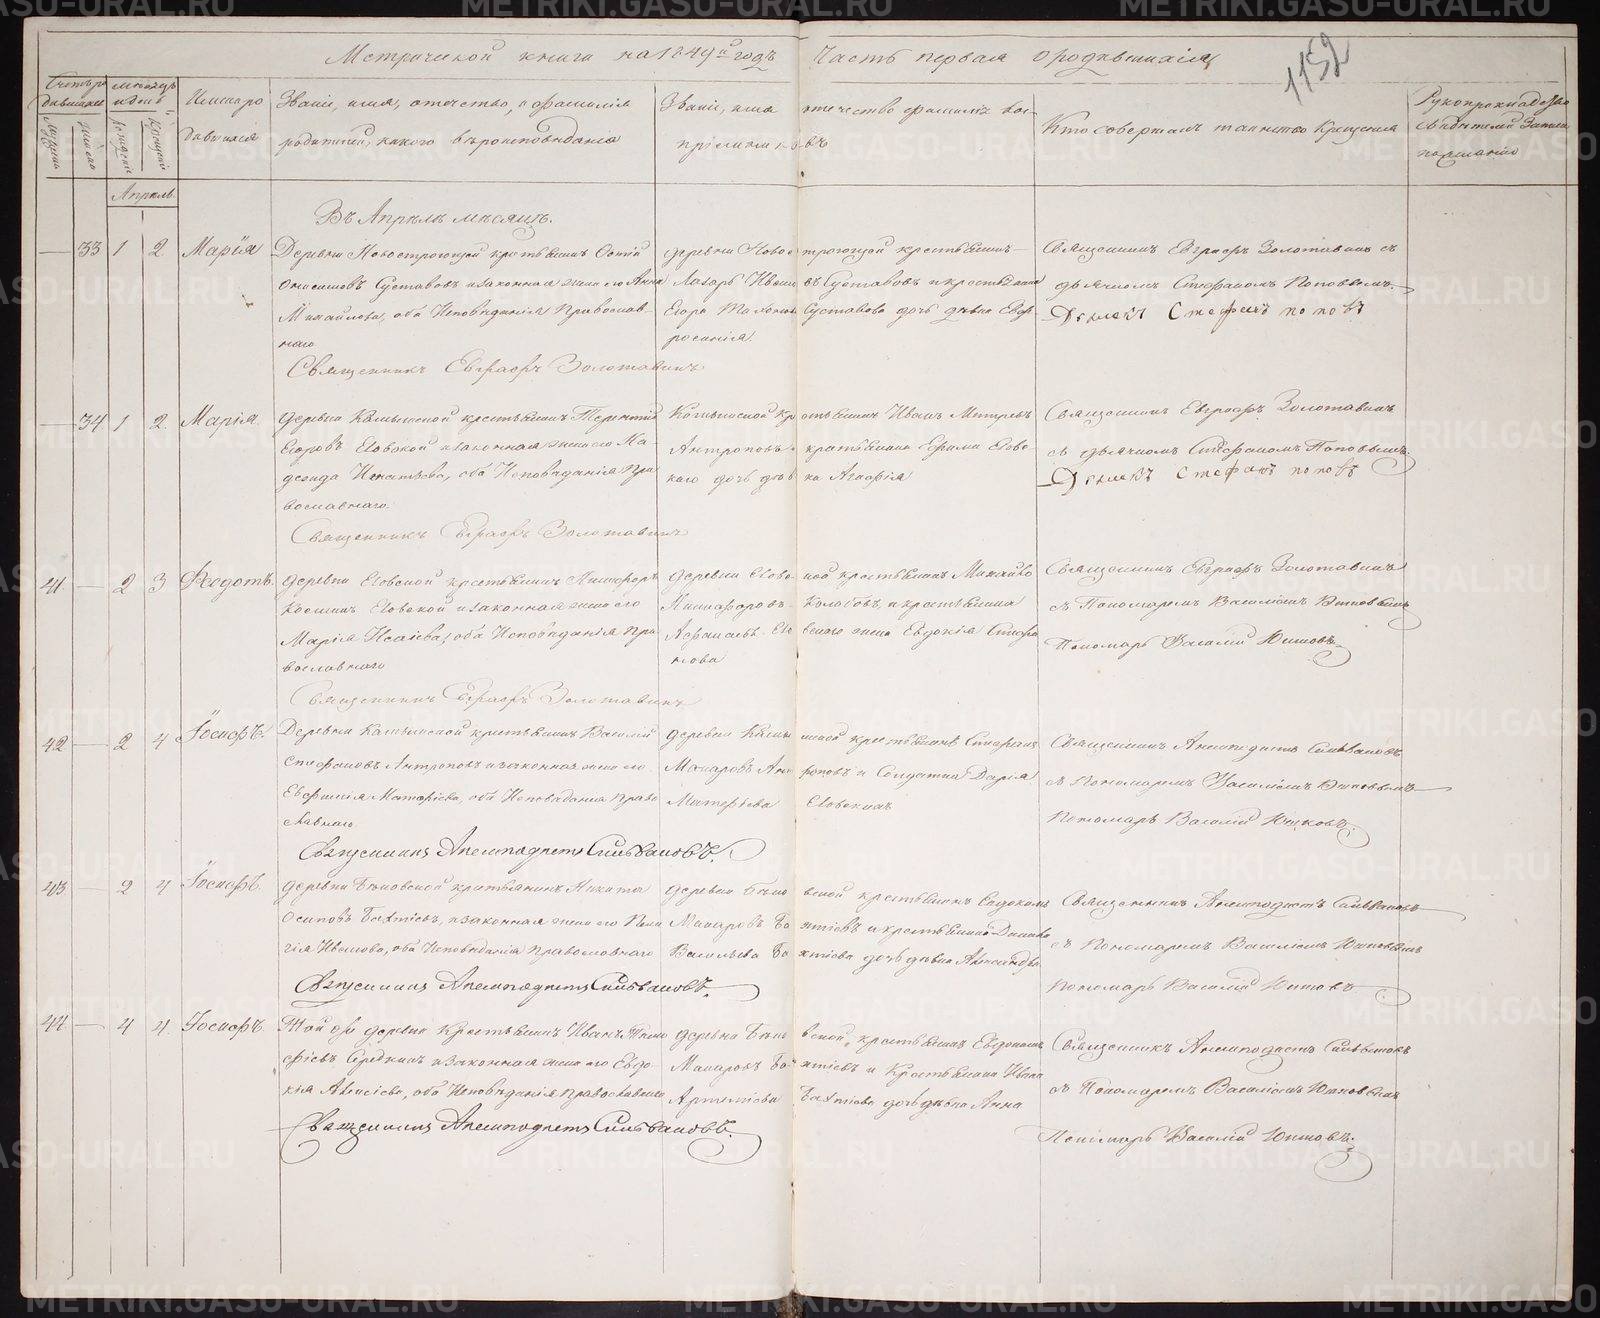 Метрической книги на 1849й годъ Часть первая о родившихся
1152
Счетъ родившихся
Мѣсяцъ и день
Имена родившихся
Званіе, имя, отечество, и фамилія
родителей, какого вѣроисповѣданія
Званіе, имя отечество фамилія вос-
пріемниковъ
Кто совершалъ таинство Крещенія
Рукоприкладство
свидѣтелей записи
по желанію
Мужеска
женска
рожденія
Крещенія
Апрѣль
Въ Апрѣлѣ мѣсяцѣ.
33 1 2 Марія
Деревни Новостроющей крестьянинъ
Суставовъ и законная жена его Анна
Михайлова, оба Исповѣданія Православ-
наго
Священникъ Евграфъ Золотавинъ
деревни Новостроющей крестьянинъ
Лазарь Ивановъ Суставовъ и крестьянина
Егора Суставова дочь дѣвка Евф-
росинія
Священникъ Евграфъ Золотавинъ съ
дьячкомъ Стефаномъ Поповымъ
Дьячекъ Стефанъ Поповъ
34 1 2 Марія
деревни крестьянинъ Терентій
Егоровъ Еговской и законная жена его Ма-
гдалина Игнатьева, оба Исповѣданія Пра-
вославнаго
Священникъ Евграфъ Золотавинъ
крестьянинъ Иванъ
Антроповъ крестьянина Ефима Егов-
каго дочь дѣвка Агафія
Священникъ Евграфъ Золотавинъ
съ дьячкомъ Стефаномъ Поповымъ
Дьячекъ Стефанъ Поповъ
41 2 3 Феодотъ
деревни Еговской крестьянинъ Никифоръ
Козминъ Еговской и законная жена его
Марія Исаіева, оба Исповѣданія Пра-
вославнаго
Священникъ Евграфъ Золотавинъ
деревни Еговской крестьянинъ Михайло
Никифоровъ и крестьянина
жена Евдокія Стефа-
нова
Священникъ Евграфъ Золотавинъ
съ Пономаремъ Василіемъ Юшковымъ
Пономарь Василій Юшковъ
42 2 4 Іосифъ
Деревни крестьянинъ Василій
Стефановъ Антроповъ и законная жена его
Евфимія Матфіева, оба Исповѣданія Право-
славнаго
Священникъ Анемподистъ Сильвановъ
деревни крестьянинъ Стефанъ
Макаровъ Антроповъ и Солдатка Дарія
Матфіева Еговскихъ
Священникъ Анемподистъ Сильвановъ
съ Пономаремъ Василіемъ Юшковымъ
Пономарь Василій Юшковъ
43 2 4 Іосифъ
деревни крестьянинъ Никита
Осиповъ Бахтіевъ, и законная жена его Пела-
гія Иванова, оба Исповѣданія Православнаго
Священникъ Анемподистъ Сильвановъ
деревни крестьянинъ Евдокимъ
Макаровъ Бахтіевъ и крестьянина
Васильева Бахтіева дочь дѣвка Александра
Священникъ Анемподистъ Сильвановъ
съ Пономаремъ Василіемъ Юшковымъ
Пономарь Василій Юшковъ
44 4 4 Іосифъ
Той же деревни Крестьянинъ Иванъ Тимо-
фіевъ и законная жена его Евдо-
кія Алексіева, оба Исповѣданія Православнаго
Священникъ Анемподистъ Сильвановъ
деревни крестьянинъ Евдокимъ
Макаровъ Бахтіевъ и Крестьянина Ивана
Артеміева Бахтіева дочь дѣвка Анна
Священникъ Анемподистъ Сильвановъ
съ Пономаремъ Василіемъ Юшковымъ
Пономарь Василій Юшковъ
METRIKI.GASO-URAL.RU